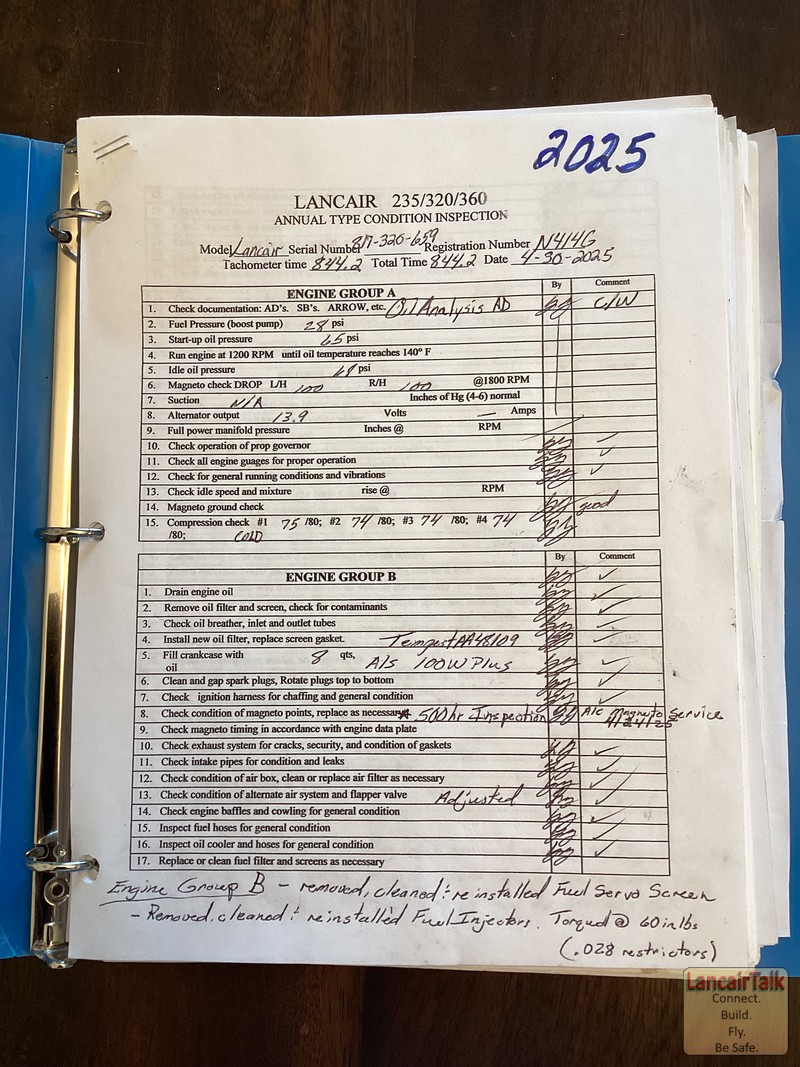 2025
LANCAIR 235/320/360
ANNUAL TYPE CONDITION INSPECTION
Model Lancair Serial Number 817-320-659 Registration Number N414G
Tachometer time 844.2 Total Time 844.2 Date 4-30-2025
ENGINE GROUP A By Comment
1. Check documentation: AD's. SB's. ARROW, etc. Oil Analysis AD C/W
2. Fuel Pressure (boost pump) 28 psi
3. Start-up oil pressure 65 psi
4. Run engine at 1200 RPM until oil temperature reaches 140° F
5. Idle oil pressure psi
6. Magneto check DROP L/H 100 R/H 100 @1800 RPM
7. Suction N/A Inches of Hg (4-6) normal
8. Alternator output 13.9 Volts — Amps
9. Full power manifold pressure Inches @ RPM
10. Check operation of prop governor ✓
11. Check all engine guages for proper operation ✓
12. Check for general running conditions and vibrations ✓
13. Check idle speed and mixture rise @ RPM
14. Magneto ground check good
15. Compression check #1 75 /80; #2 74 /80; #3 74 /80; #4 74
/80; COLD
By Comment
ENGINE GROUP B ✓
1. Drain engine oil ✓
2. Remove oil filter and screen, check for contaminants ✓
3. Check oil breather, inlet and outlet tubes ✓
4. Install new oil filter, replace screen gasket. Tempest AA48109 ✓
5. Fill crankcase with 8 qts, A/s 100W Plus ✓
oil
6. Clean and gap spark plugs, Rotate plugs top to bottom ✓
7. Check ignition harness for chaffing and general condition ✓
8. Check condition of magneto points, replace as necessary 500hr Inspection A/c Magneto Service
4/24/25
9. Check magneto timing in accordance with engine data plate
10. Check exhaust system for cracks, security, and condition of gaskets ✓
11. Check intake pipes for condition and leaks ✓
12. Check condition of air box, clean or replace air filter as necessary ✓
13. Check condition of alternate air system and flapper valve Adjusted ✓
14. Check engine baffles and cowling for general condition ✓
15. Inspect fuel hoses for general condition ✓
16. Inspect oil cooler and hoses for general condition ✓
17. Replace or clean fuel filter and screens as necessary
Engine Group B - removed, cleaned & reinstalled Fuel Servo Screen
- Removed, cleaned & reinstalled Fuel Injectors. Torqued @ 60 in lbs
(.028 restrictors)
LancairTalk
Connect.
Build.
Fly.
Be Safe.